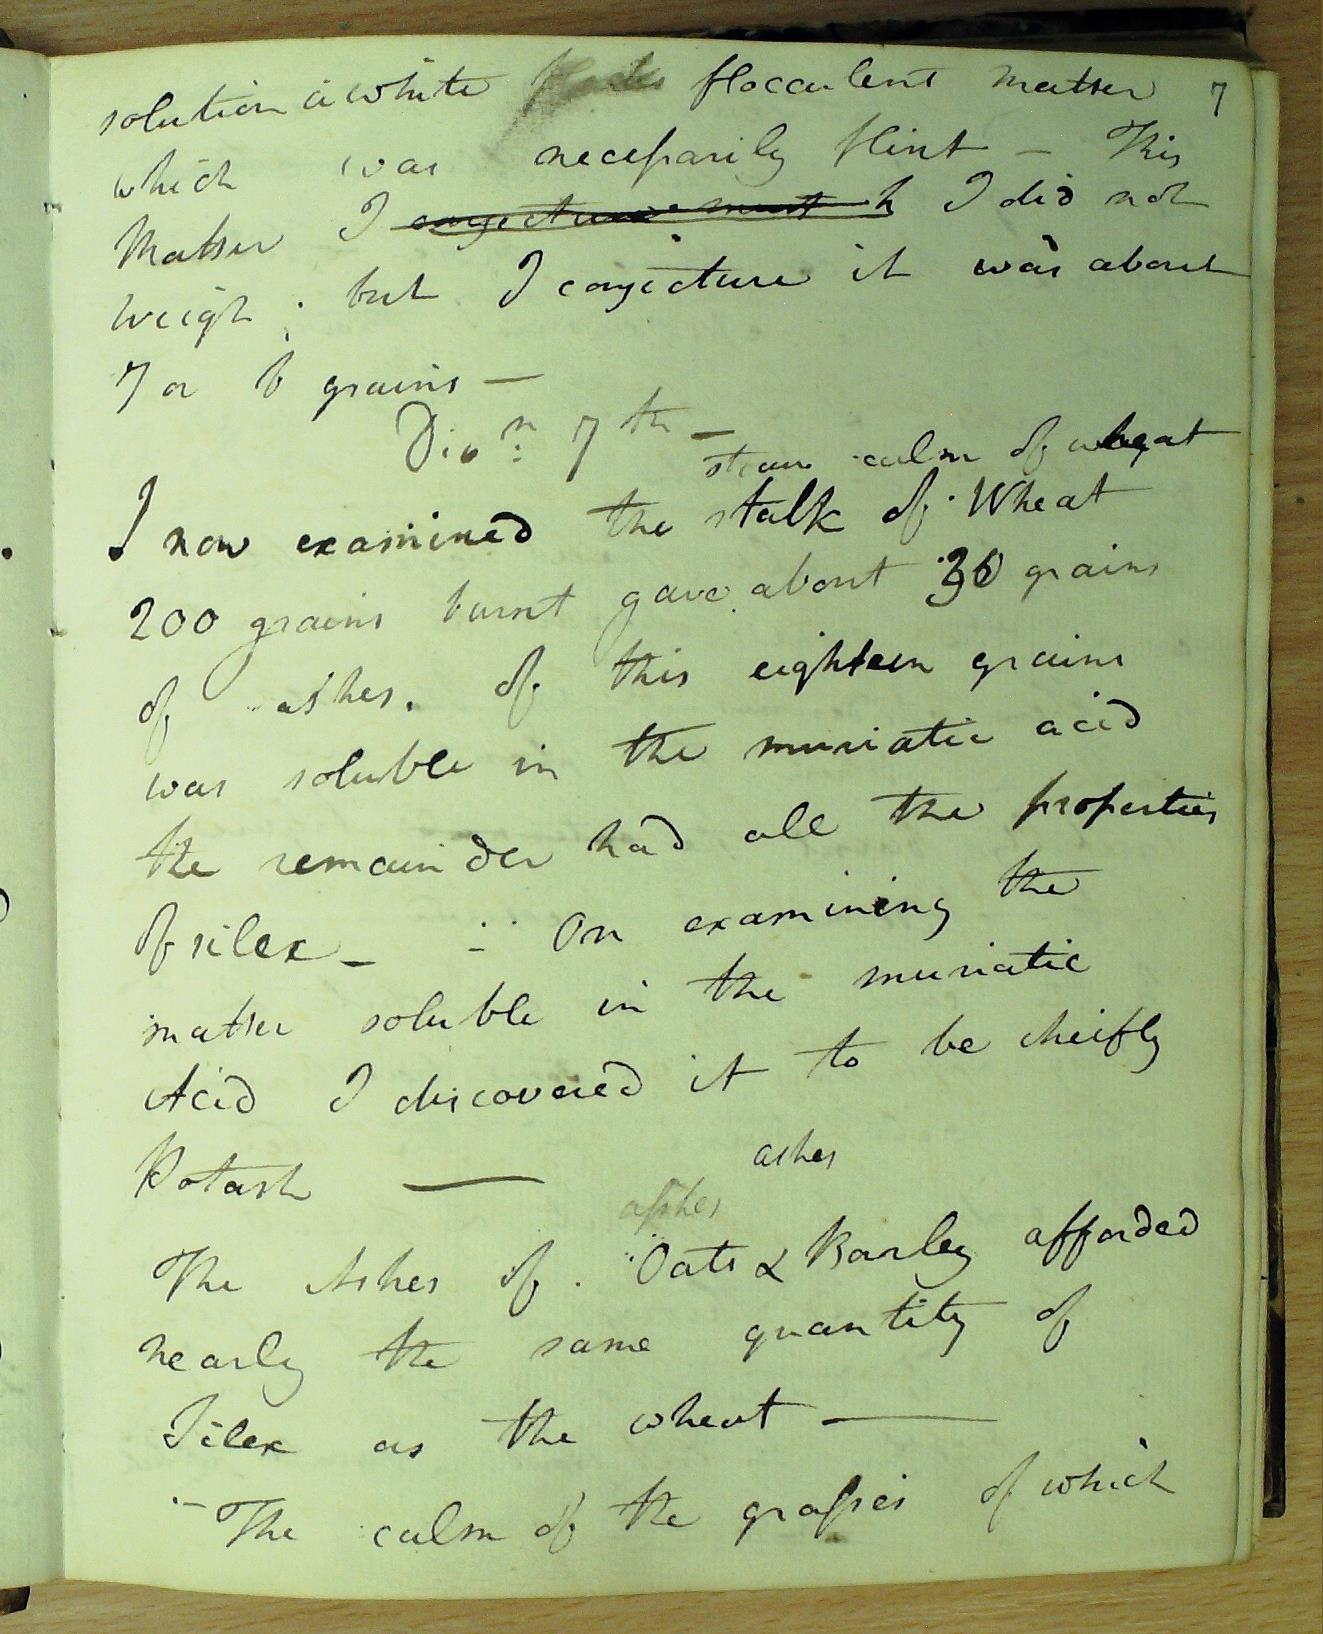 solution a white flocculent matter 7
which was necessarily flint – This
Matter I conjecture must h I did not
weigh; but I conjecture it was about
7 or 6 grains —
Divn: 7th –
straw culm of wheat
I now examined the stalk of Wheat
200 grains burnt gave about 36 grains
of ashes. of this eighteen grains
was soluble in the muriatic acid
the remainder had all the properties
of silex – – On examining the
matter soluble in the muriatic
Acid I discovered it to be cheifly
Potash —
ashes
ashes
The Ashes of Oats & Barley afforded
nearly the same quantity of
Silex as the wheat —
– The culm of the grasses of which